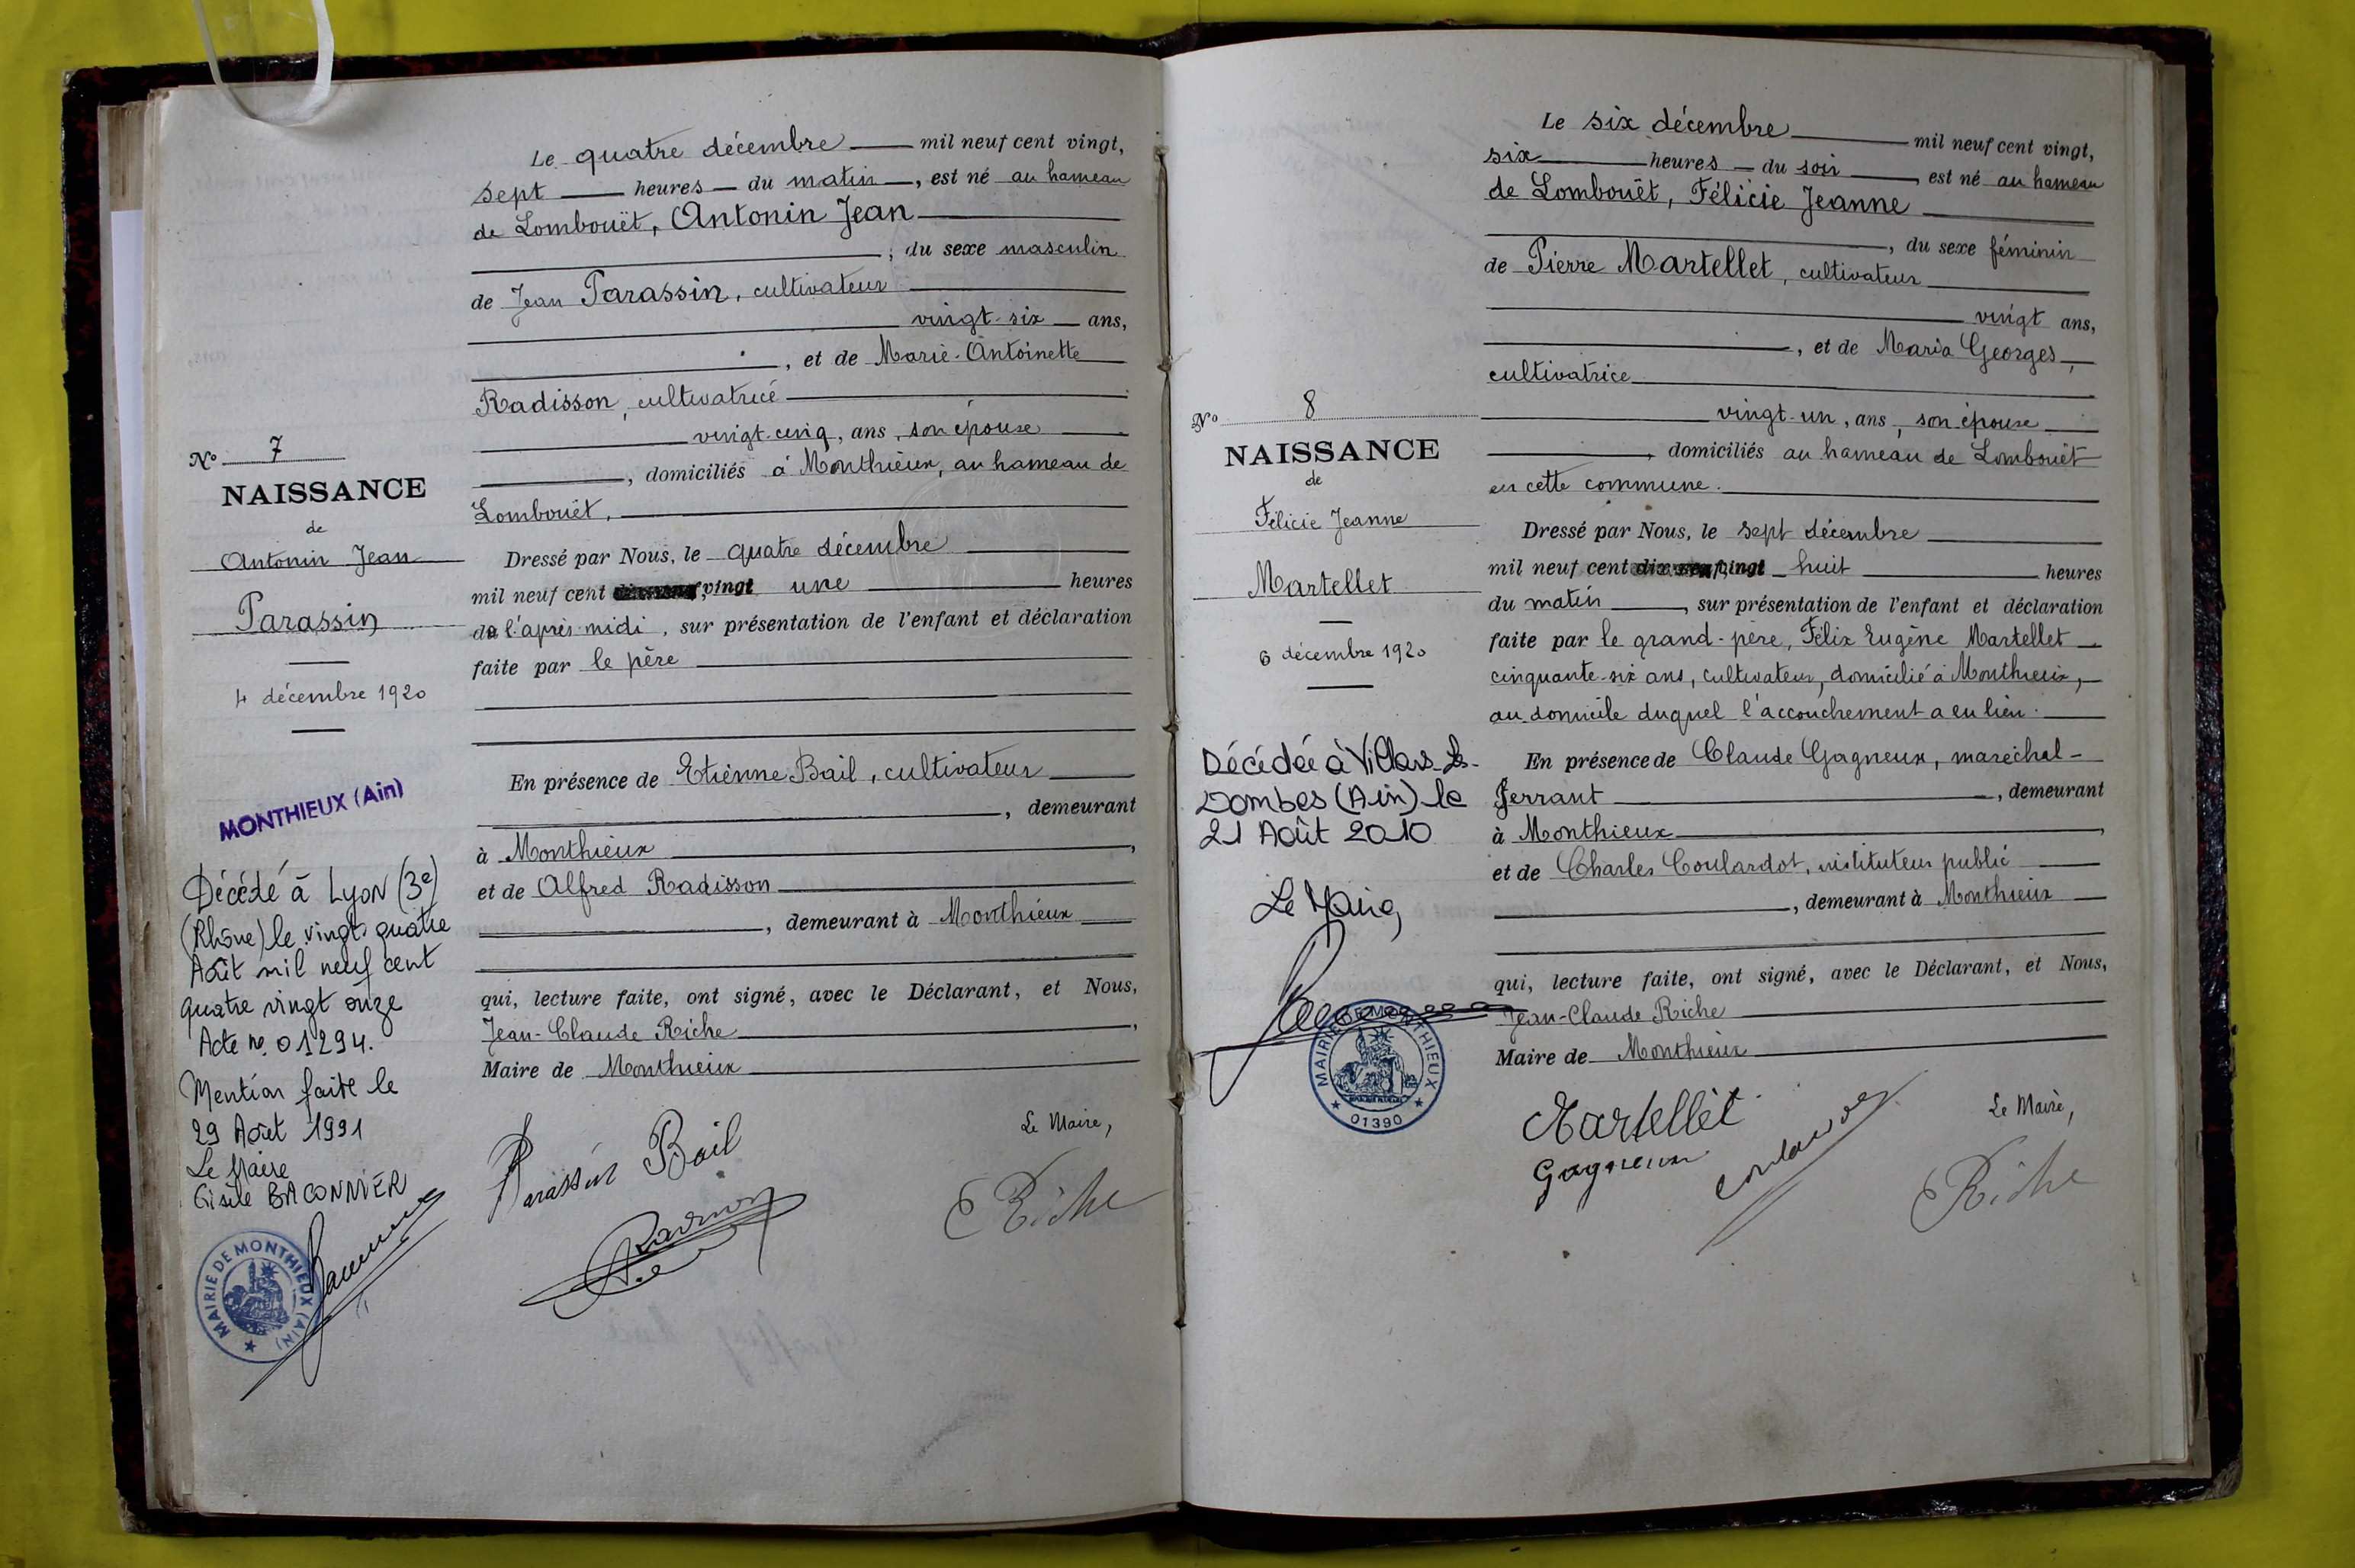 Le quatre décembre mil neuf cent vingt,
sept heures du matin, est né au hameau
de Lombouët, Antonin Jean
, du sexe masculin
de Jean Parassin, cultivateur
vingt-six ans,
, et de Marie-Antoinette
Radisson, cultivatrice
vingt-cinq, ans, son épouse
, domiciliés à Monthieux, au hameau de
Lombouët,
Dressé par Nous, le quatre décembre
mil neuf cent vingt une heures
de l'après-midi, sur présentation de l'enfant et déclaration
faite par le père
En présence de Etienne Bail, cultivateur
, demeurant
à Monthieux,
et de Alfred Radisson
, demeurant à Monthieux
qui, lecture faite, ont signé, avec le Déclarant, et Nous,
Jean-Claude Riche,
Maire de Monthieux
Le Maire,
Parassin Bail
Riche
N° 7
NAISSANCE
de
Antonin Jean
Parassin
4 décembre 1920
MONTHIEUX (Ain)
Décédé à Lyon (3e)
(Rhône) le vingt quatre
Août mil neuf cent
quatre vingt onze
Acte no. 01294.
Mention faite le
29 Août 1991
Le Maire
Gisèle BACONNIER
MAIRIE DE MONTHIEUX (AIN)
Le six décembre mil neuf cent vingt,
six heures du soir, est né au hameau
de Lombouët, Félicie Jeanne
, du sexe féminin
de Pierre Martellet, cultivateur
vingt ans,
, et de Maria Georges,
cultivatrice
vingt-un, ans, son épouse
, domiciliés au hameau de Lombouët
en cette commune.
Dressé par Nous, le sept décembre
mil neuf cent vingt huit heures
du matin, sur présentation de l'enfant et déclaration
faite par le grand-père, Félix Eugène Martellet
cinquante-six ans, cultivateur, domicilié à Monthieux,
au domicile duquel l'accouchement a eu lieu.
En présence de Claude Gagneux, maréchal-
ferrant, demeurant
à Monthieux,
et de Charles Coulardot, instituteur public
, demeurant à Monthieux
qui, lecture faite, ont signé, avec le Déclarant, et Nous,
Jean-Claude Riche
Maire de Monthieux
Martellet
Le Maire,
Gagneux
Coulardot
Riche
N° 8
NAISSANCE
de
Félicie Jeanne
Martellet
6 décembre 1920
Décédée à Villars-les-
Dombes (Ain) le
21 Août 2010
Le Maire,
MAIRIE DE MONTHIEUX
01390